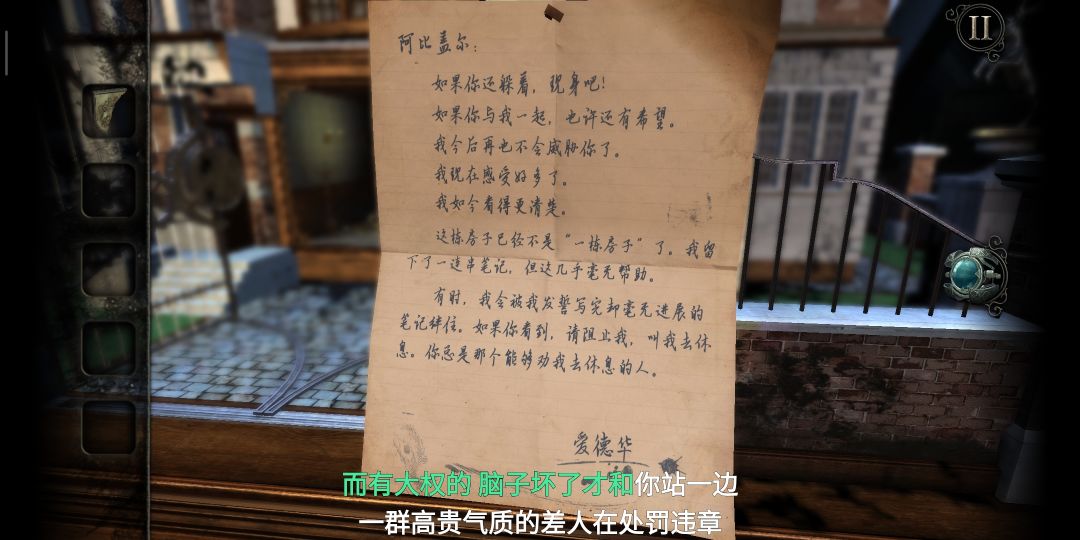 II
阿比盖尔：
如果你还躲着，现身吧！
如果你与我一起，也许还有希望。
我今后再也不会威胁你了。
我现在感受好多了。
我如今看得更清楚。
这栋房子已经不是“一栋房子”了。我留
下了一连串笔记，但这几乎毫无帮助。
有时，我会被我发誓写完却毫无进展的
笔记绊住。如果你看到，请阻止我，叫我去休
息。你总是那个能够劝我去休息的人。
爱德华
而有大权的 脑子坏了才和你站一边
一群高贵气质的差人在处罚违章